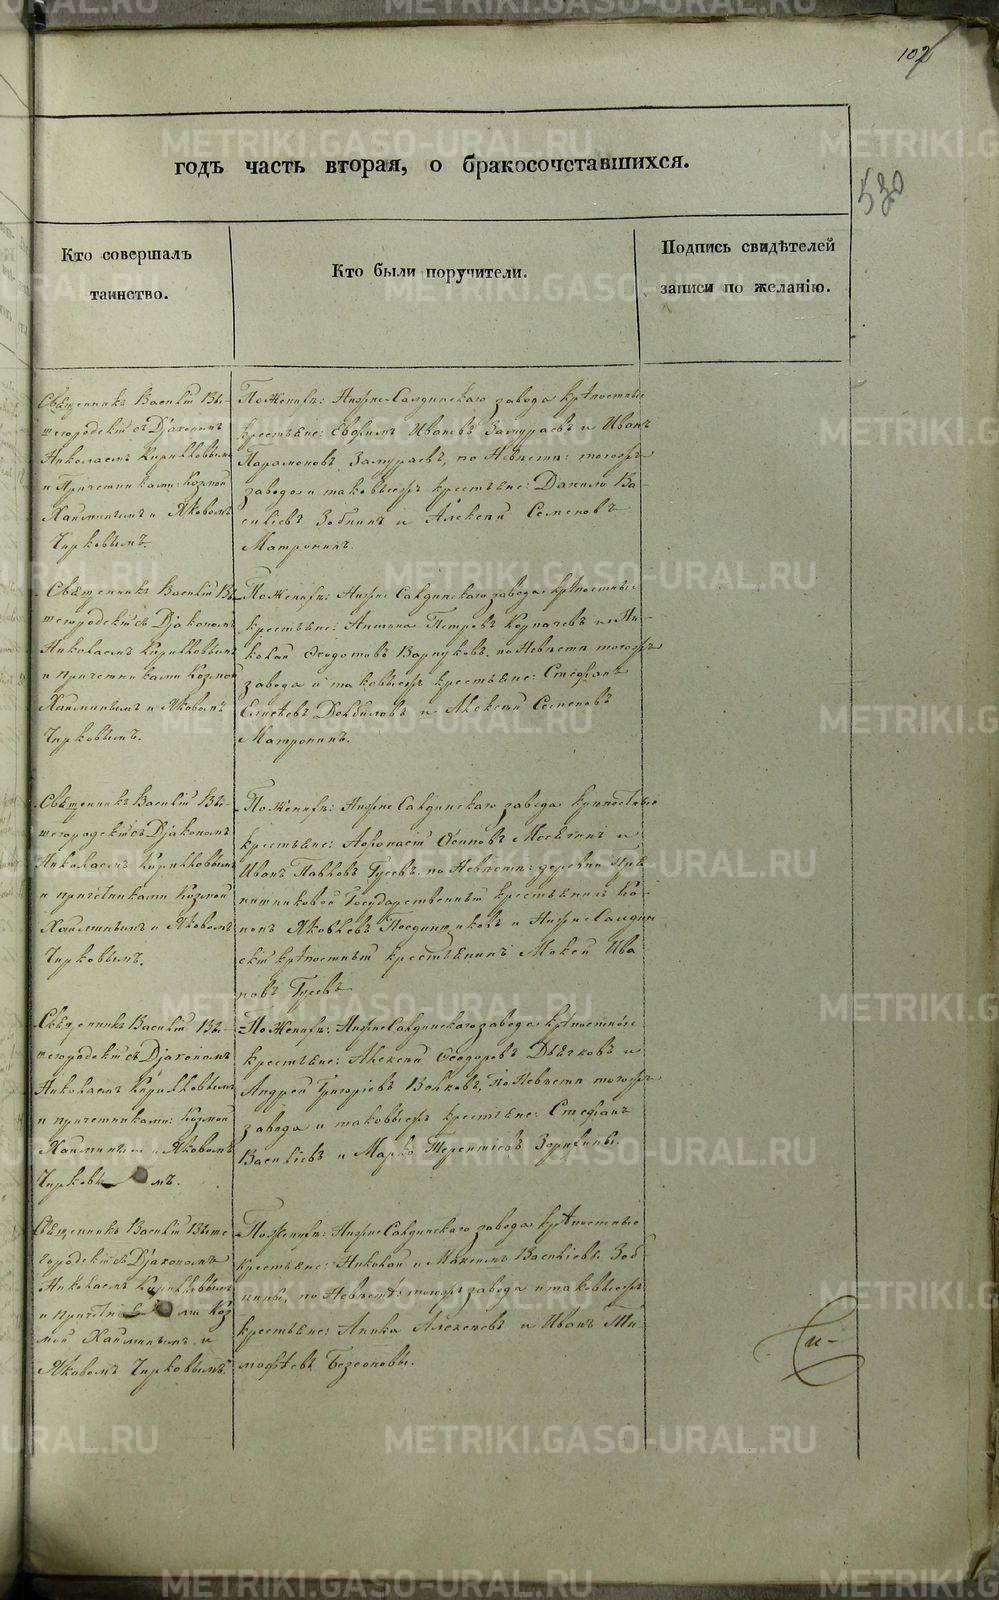 102
530
годъ часть вторая, о бракосочетавшихся.
Кто совершалъ
таинство.
Кто были поручители.
Подпись свидѣтелей
записи по желанію.
Священникъ Василій Вы-
шегородскій съ Діакономъ
Николаемъ Кирилловымъ
и Причетниками: Козмой
и Яковомъ
Чирковымъ.
По Женихѣ: Нижне-Салдинскаго завода крѣпостные
крестьяне: Ефимъ Ивановъ Замураевъ и Иванъ
Парамоновъ Замураевъ, по Невѣстѣ: тогожъ
завода и таковыежъ крестьяне: Данило Ва-
сильевъ Зобнинъ и Алексей Семеновъ
Матронинъ.
Священникъ Василій Вы-
шегородскій съ Діакономъ
Николаемъ Кирилловымъ
и причетниками Козмой
и Яковомъ
Чирковымъ.
По Женихѣ: Нижне Салдинскаго завода крѣпостные
крестьяне: Петровъ и Ни-
колай Федотовъ по Невѣстѣ тогожъ
завода и таковыежъ крестьяне: Стефанъ
Елисѣевъ и Алексей Семеновъ
Матронинъ.
Священникъ Василій Вы-
шегородскій съ Діакономъ
Николаемъ Кирилловымъ
и причетниками Козмой
и Яковомъ
Чирковымъ.
По Женихѣ: Нижне Салдинскаго завода крѣпостные
крестьяне: Осиповъ и
Иванъ Павловъ Гусевъ. по Невѣстѣ: деревни
Государственный крестьянинъ
Яковлевъ и Нижне Салдин-
скій крѣпостный крестьянинъ Мокей Ива-
новъ Гусевъ
Священникъ Василій Вы-
шегородскій съ Діакономъ
Николаемъ Кирилловымъ
и причетниками: Козмой
и Яковомъ
Чирковымъ.
По Женихѣ: Нижне Салдинскаго завода крѣпостные
крестьяне: Алексей Феодоровъ и
Андрей Григорьевъ Волковъ, По Невѣстѣ тогожъ
завода и таковыежъ крестьяне: Стефанъ
Васильевъ и Марко Терентьевъ
Священникъ Василій Выше
городскій съ Діакономъ
Николаемъ Кирилловымъ
и Причетниками Коз
мой и
Яковомъ Чирковымъ.
По Женихѣ: Нижне Салдинскаго завода крѣпостные
крестьяне: Николай и Максимъ Васильевы Зоб-
нины, по Невѣстѣ: тогожъ завода и таковыежъ
крестьяне: Аника Алексеевъ и Иванъ Ти-
мофѣевъ
METRIKI.GASO-URAL.RU